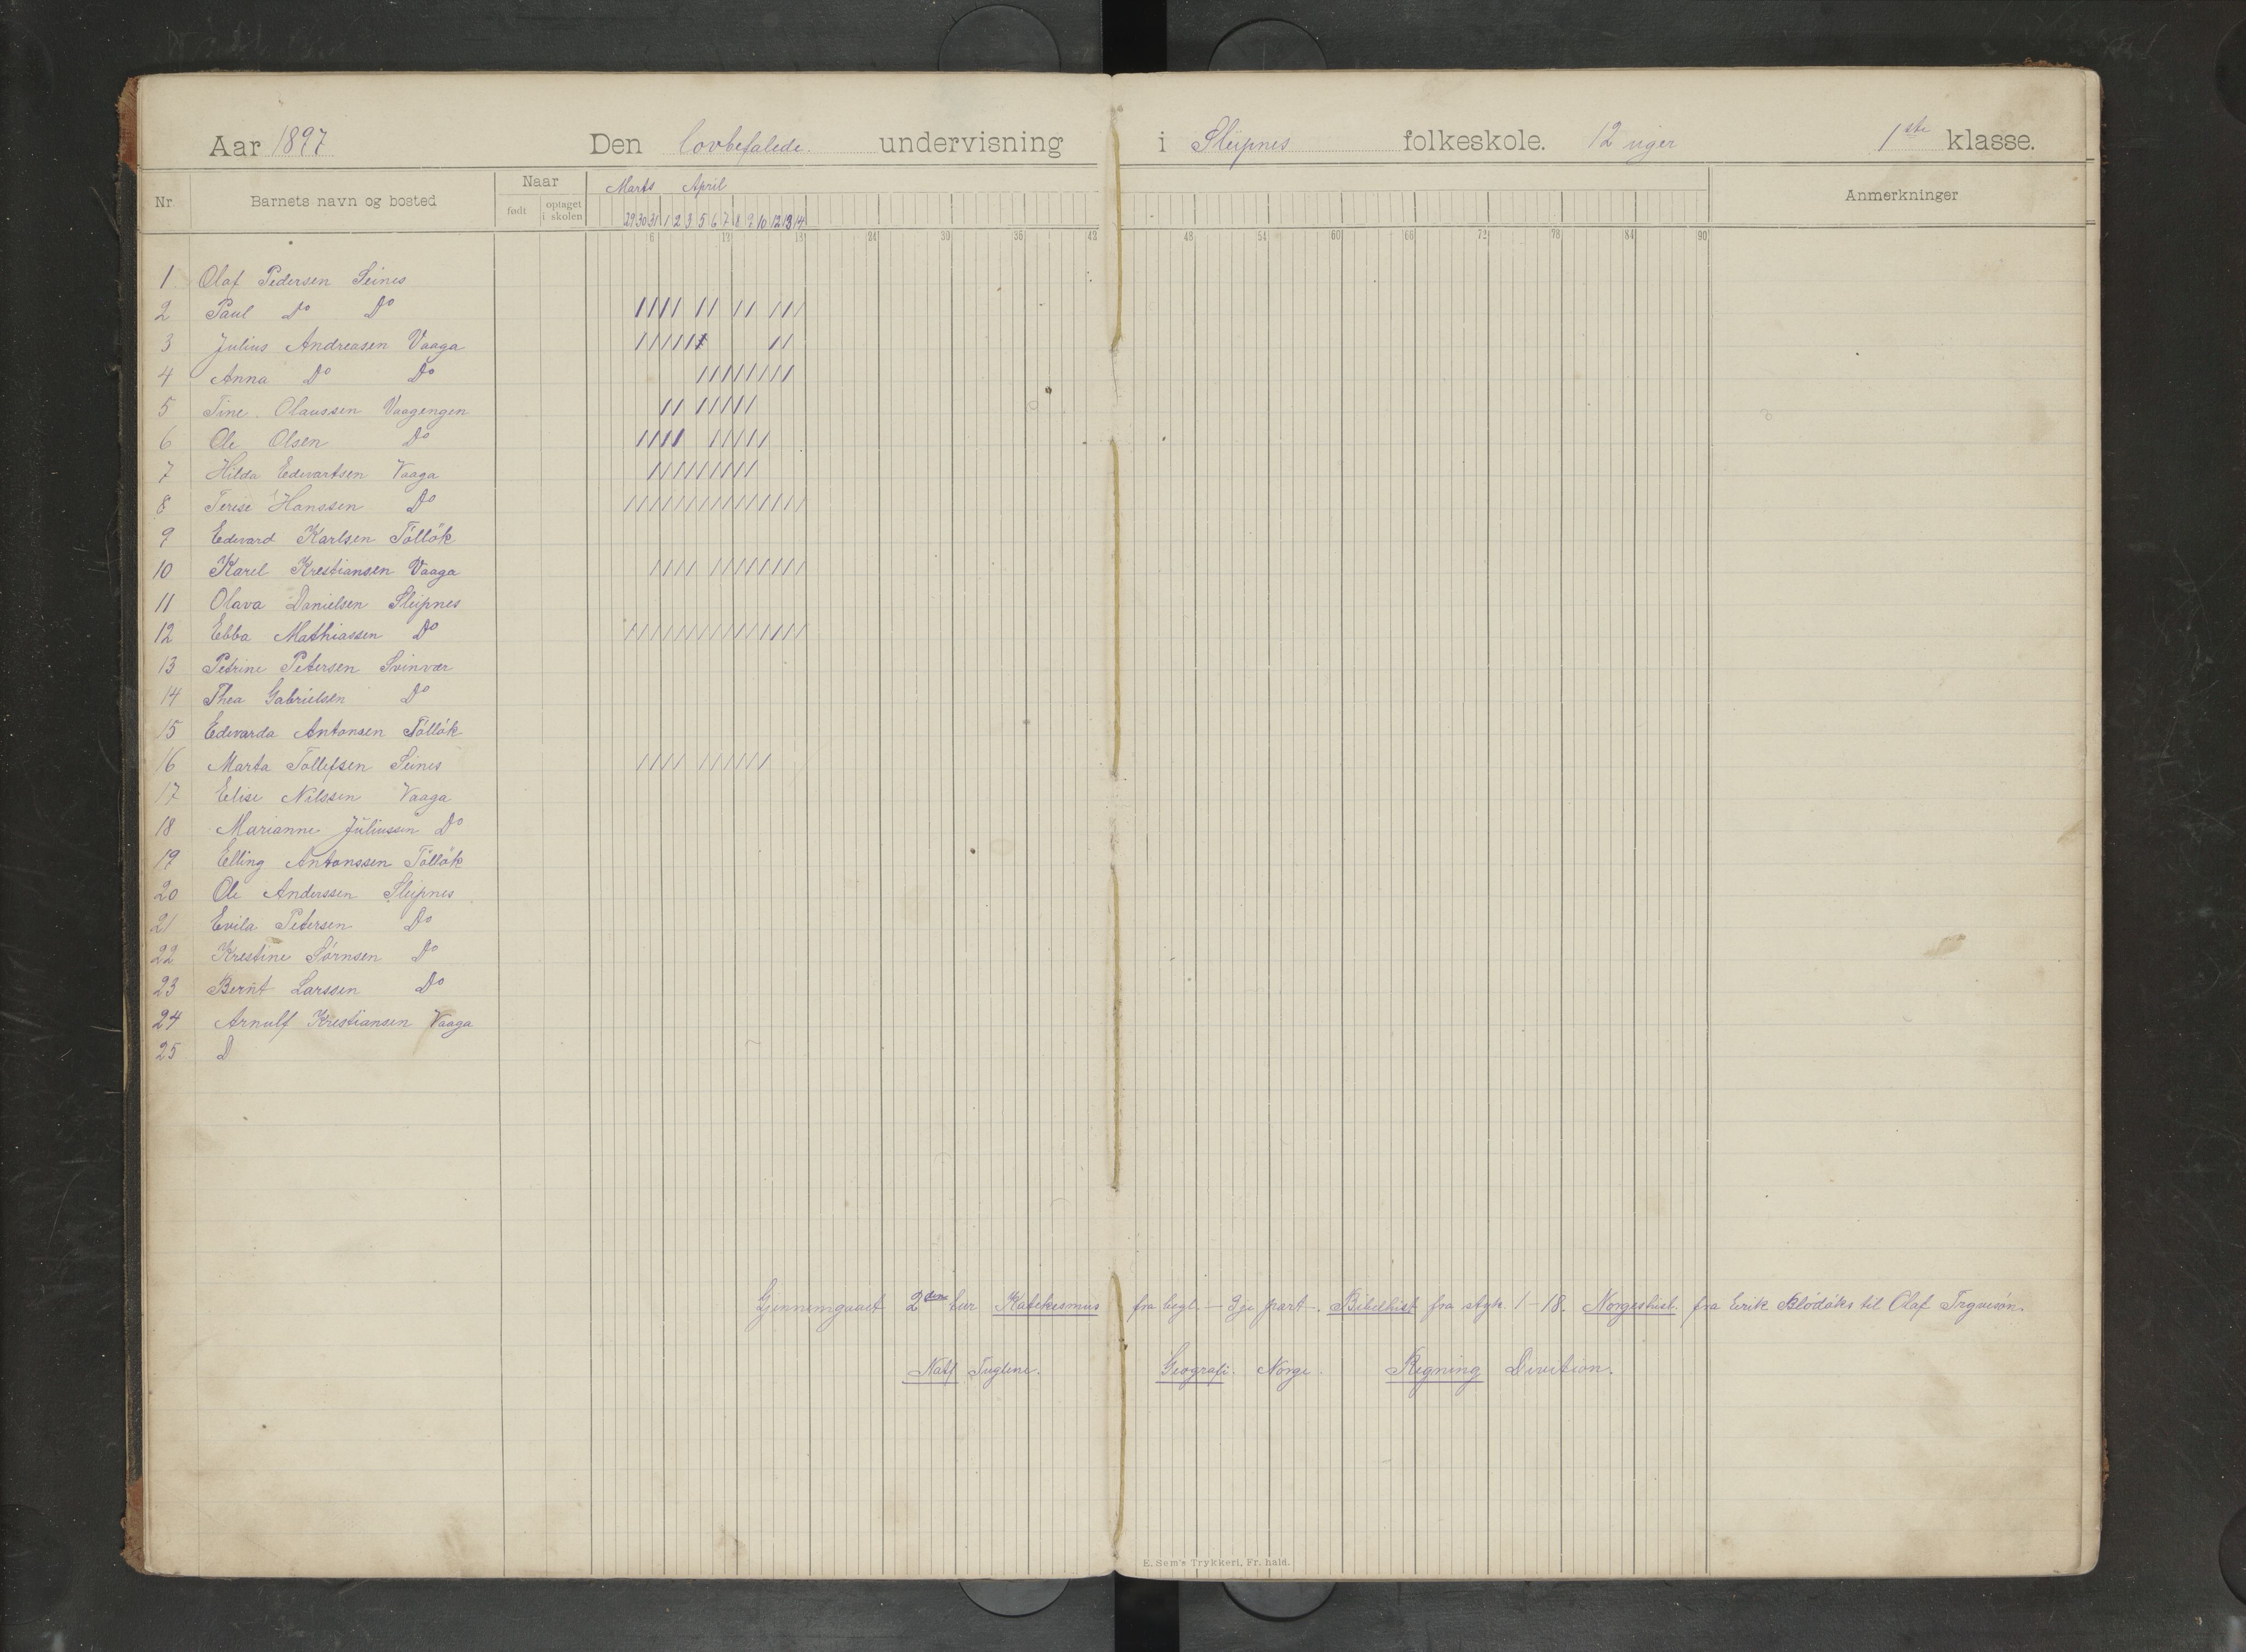 Aar 1897 Den lovbefalede undervisning i Sleipnes folkeskole. 12 uger 1ste klasse.
Nr. Barnets navn og bosted Naar født optaget i skolen Marts April Anmerkninger
29 30 31 1 2 3 5 6 7 8 9 10 12 13 14
6 12 18 24 30 36 42 48 54 60 66 72 78 84 90
1 Olaf Pedersen Seines
2 Paul Do Do
3 Julius Andreasen Vaaga
4 Anna Do Do
5 Tine Olaussen Vaagengen
6 Ole Olsen Do
7 Hilda Edevartsen Vaaga
8 Terese Hanssen Do
9 Edevard Karlsen Töllök
10 Karel Krestiansen Vaaga
11 Olava Danielsen Sleipnes
12 Ebba Mathiassen Do
13 Petrine Petersen Svinvær
14 Thea Gabrielsen Do
15 Edevarda Antonsen Töllök
16 Marta Tollefsen Seines
17 Elise Nilssen Vaaga
18 Marianne Juliussen Do
19 Elling Antonssen Töllök
20 Ole Anderssen Sleipnes
21 Evila Petersen Do
22 Krestine Sørnsen Do
23 Bernt Larssen Do
24 Arnulf Krestiansen Vaaga
25 D
Gjennemgaaet 2den Katekesmus fra begl. - 3je part. Bibelhist fra styk. 1-18. Norgeshist. fra Eirik Blodöks til Olaf
Natf Fuglene. Geografi. Norge. Regning Divition.
E. Sem's Trykkeri, Fr. hald.